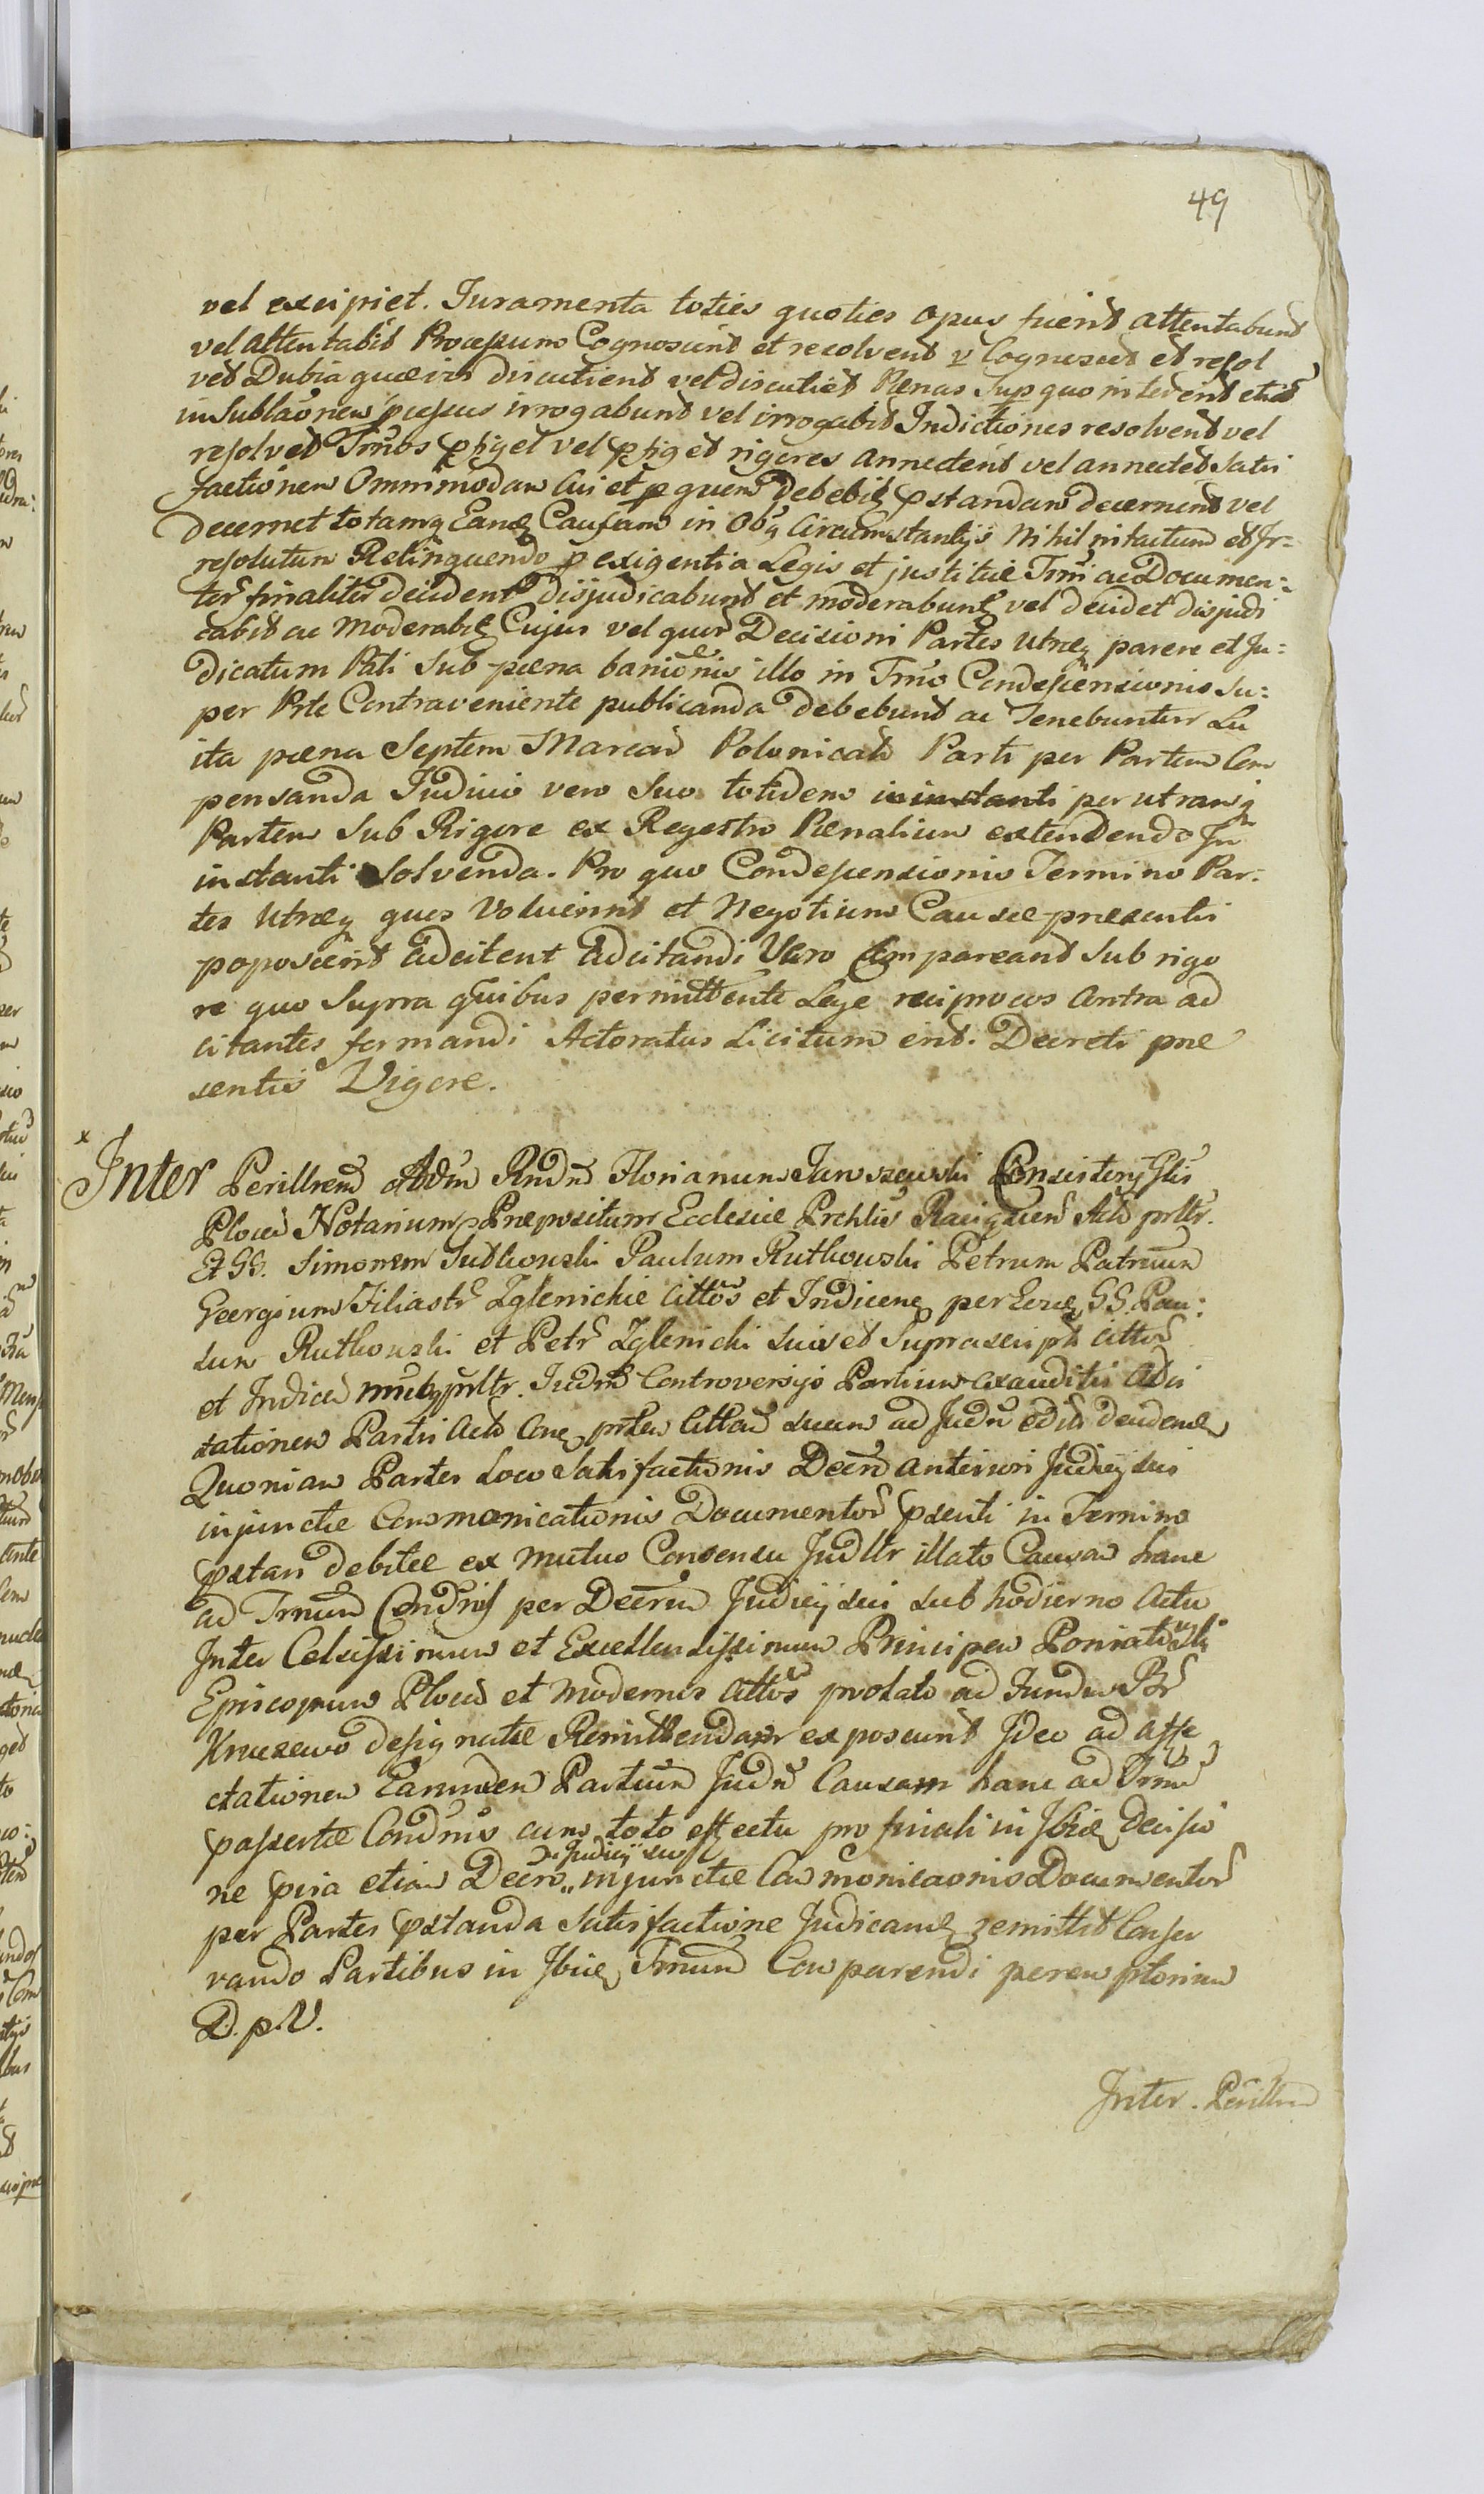 49
vel excipiet. Juramenta toties quoties opus fuerit attentabunt
vel attentabit Processum Cognoscent et resolvent v Cognoscet et resol
vet Dubia quævis discutient vel discutiet Pænas Sup quo niti erint etiã
in Sublaõnem processus irrogabunt vel irrogabit Indictiones resolvent vel
resolvet Trnõs pfiget vel pfiget rigores annectent vel annectet Satis
factionem Ommimodam Cui et p quem debebit pstandam decernent vel
decernet totamq Eand Causam in Obq Circumstantijs Nihil nitactum et Ir=
resolutum Relinquendo p exigentia Legis et justitiæ Trni ac Documen=
tor finaliter decident disjudicabunt et moderabunt vel decidet disjudi
cabit ac Moderabit Cujus vel quor Decisioni Partes Utræq parere et Ju=
dicatum Pati Sub pæna banionis illo in Trno Condescensionis Su=
per Prte Contraveniente publicanda debebunt ac Tenebuntur Lu
ita pæna Septem Marcar Polonicals Parti per Partem Com
pensanda Judicio vero Suo totidem in instanti per utramq
Partem Sub Rigore ex Regestro Pænalium extendendo In
instanti Solvenda. Pro quo Condescensionis Termino Par=
tes Utræq ques Voluerint et Negotium Causæ præsentis
poposcerit adcitent adcitandi Vero Compareant Sub rigo
re quo Supra quibus permittente Lege reciprocos Contra ad
citantes formandi Actoratus Licitum erit. Decreti præ
sentis Vigore.
x
Inter Perillrem Adm Rndm Florianum Consistory Glis
Plocen Notarium Præpositum Ecclesiæ Prchlis Raciążen Act prltr.
Et GG. Simonem Sutkowski Paulum Rutkowski Petrum Patruum
Georgium Filiastr Zglenickie Cittos et Indicene per Eosd GG. Pau=
lum Rutkowski et Petr Zglenicki Suis et Suprascript Cittor
et Indicen nmbq prltr. Judm Controversijs Partium exauditis Adci
tationem Partis Act Citta suum ad Judm
Quoniam Partes Loco Satisfactionis Decro anteriori Judicij sui
injunctæ Commonicationis Documentor psenti in Termino
pstan debitæ ex Mutuo Consensu Judltr illato Causam hanc
ad Trnum Condnis per Decrm Judicij sui Sub hodierno Actu
Inter Celsissimum et Excellentissimum Principem Poniatowski
Episcopum Plocen et Modernos Cittos prolato ad Fundum Br
designatæ Remittendam exposcunt Ideo ad affe
ctationem Earumdem Partium Judm Causam hanc ad Trnum
passertæ Condnis cum toto effectu pro finali in Ibid Decisio
ne pvia etiam Decro Judicij sui injunctæ Commonicaonis Documentor
per Partes pstanda Satisfactione Judicand remittit Conser
vando Partibus in Ibid Trnum Comparendi peremptorium
D. p. V.
Inter. Perillrem